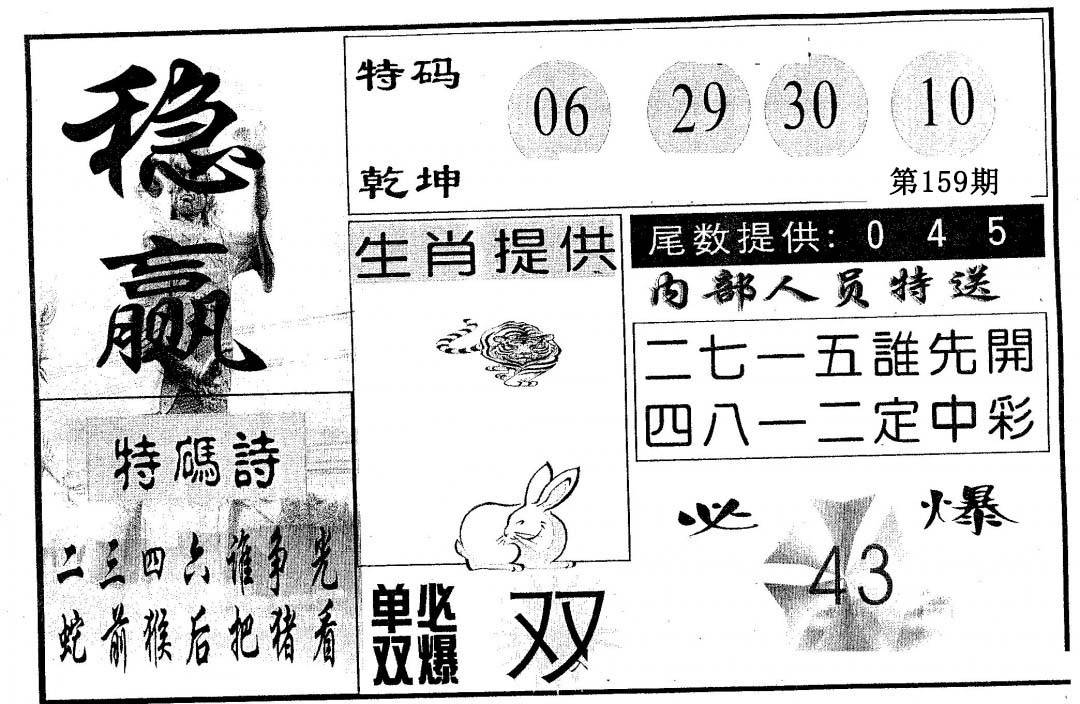 稳
赢
特码
06 29 30 10
乾坤
第159期
生肖提供
尾数提供: 0 4 5
内部人员特送
二七一五誰先開
四八一二定中彩
特碼詩
二三四六谁争光
蛇前猴后把猪看
必爆
43
单双
必爆
双